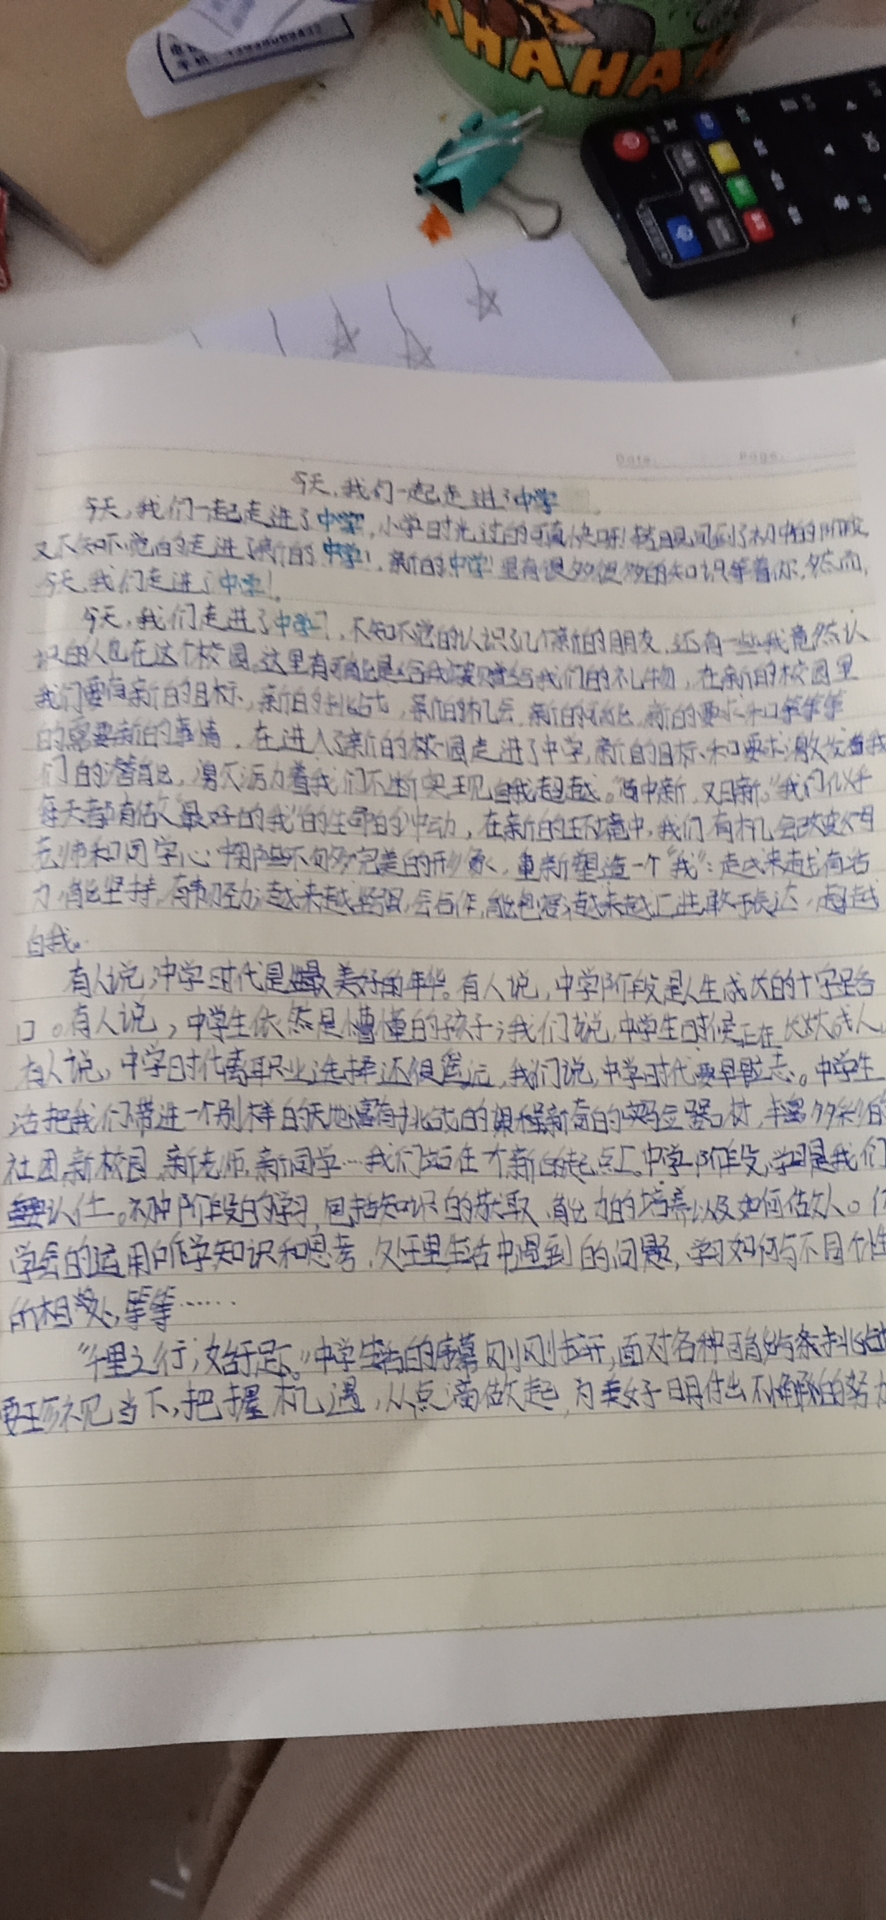 HAHAHA
Date. Page.
今天,我们一起走进了中学
今天,我们一起走进了中学,小学时光过的可真快呀!转眼间到了初中的阶段,
又不知不觉的走进了新的中学!,新的中学!里有很多很多的知识等着你,然而,
今天,我们走进了中学!
今天,我们走进了中学,不知不觉的认识了几个新的朋友,还有一些我竟然认
识的人也在这个校园,这里有可能是给我们的礼物,在新的校园里
我们要有新的目标,新的挑战,新的机会,新的可能,新的要求和等等等
的需要新的事情,在进入了新的校园走进了中学,新的目标和要求激发着我
们的潜能,激发活力着我们不断实现自我超越。"苟日新,又日新。"我们似乎
每天都有做"最好的我"的生命的冲动,在新的环境中,我们有机会改变
老师和同学心中那些不够完美的形象,重新塑造一个"我":越来越有活
力,能坚持,有韧劲;越来越坚强,会合作,能包容;越来越上进,敢于表达,超越
自我。
有人说,中学时代是最美好的年华。有人说,中学阶段是人生成长的十字路
口。有人说,中学生依然是懵懂的孩子;我们说,中学生时候正在长大成人。
有人说,中学时代离职业选择还很遥远,我们说,中学时代要早立志。中学生
活把我们带进一个别样的天地:富有挑战的课程,新奇的实验,丰富多彩的
社团,新校园,新老师,新同学…我们站在了新的起点上。中学阶段,学习是我们
重要认任。不同阶段的学习,包括知识的获取,能力的培养以及如何做人。
学会的运用所学知识和思考,处理生活中遇到的问题,学习如何与不同个性
的相处,等等……
"千里之行,始于足下。"中学生活的序幕刚刚拉开,面对各种可能与挑战
要珍视当下,把握机遇,从点滴做起,为美好明天付出不懈的努力